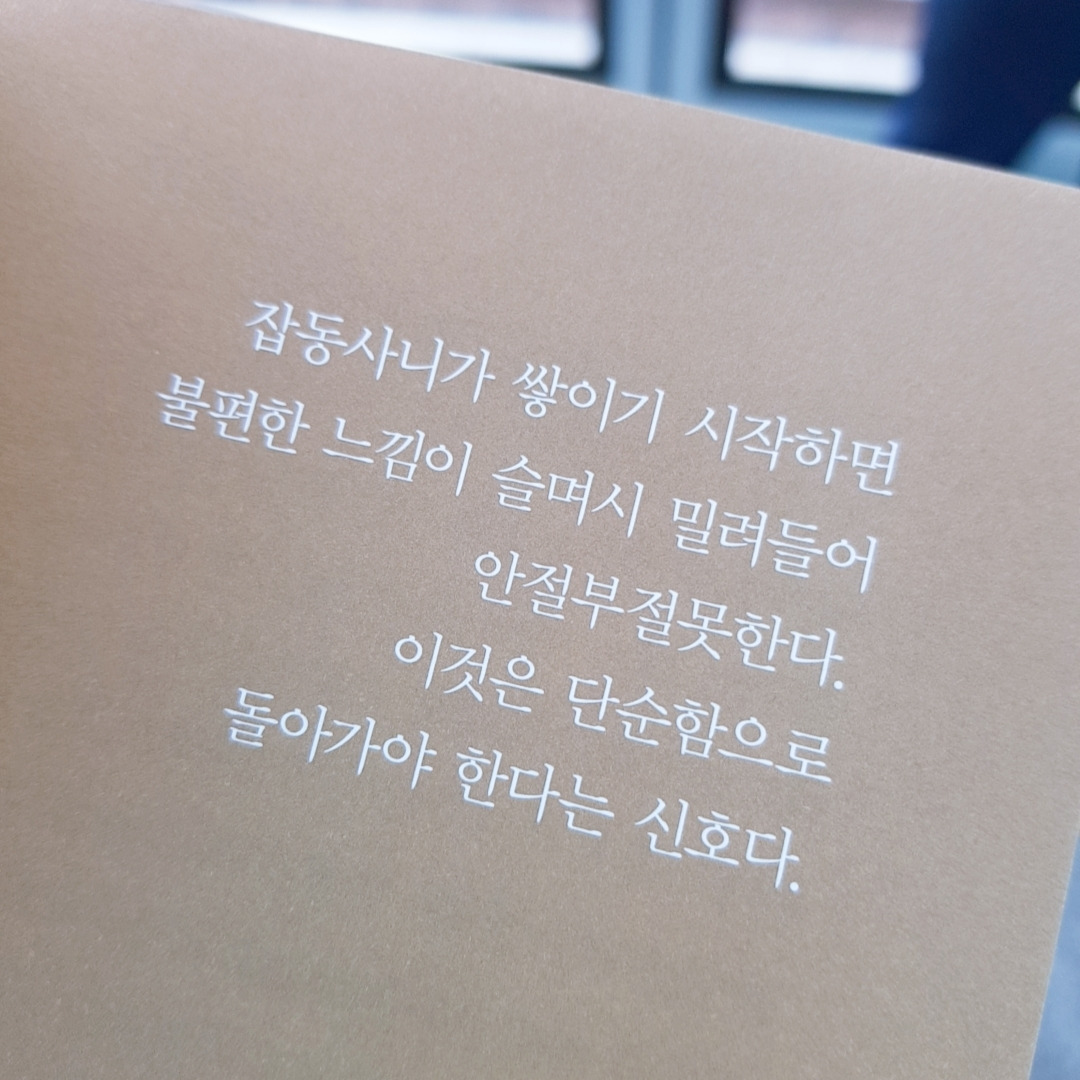 잡동사니가 쌓이기 시작하면
불편한 느낌이 슬며시 밀려들어
안절부절못한다.
이것은 단순함으로
돌아가야 한다는 신호다.